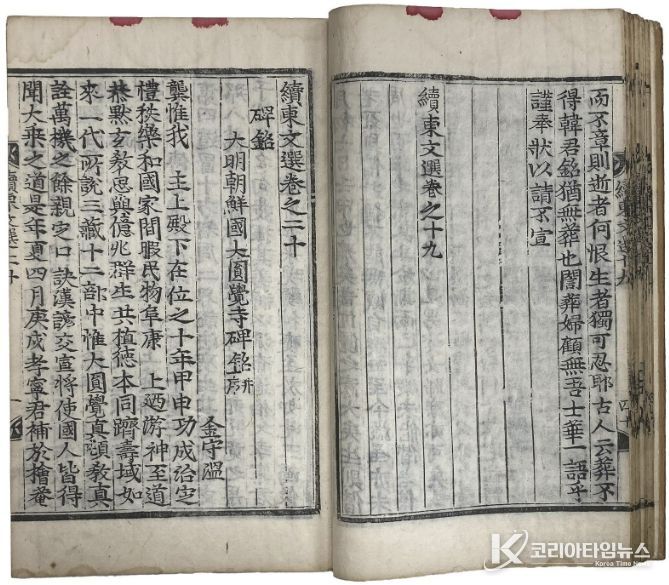 而不章則逝者何恨生者獨可忍耶古人云葬不
得韓君銘猶無葬也誾葬婦顧無吾士華一語乎
謹奉狀以請不宣
續東文選卷之十九
續東文選卷之二十
碑銘
大明朝鮮國大圓覺寺碑銘 幷序
金守溫
龔惟我 主上殿下在位之十年甲申功成治定
禮秩樂和國家閒暇民物阜康 上迺游神至道
恭默玄教思與億兆群生共植德本同躋壽域如
來一代所說三藏十二部中惟大圓覺真頓教真
詮萬機之餘親定口訣漢諺交宣將使國人皆得
聞大乘之道是年夏四月庚戌孝寧君補於檜菴
續東文選二十
코리아타임뉴스
Korea Time News